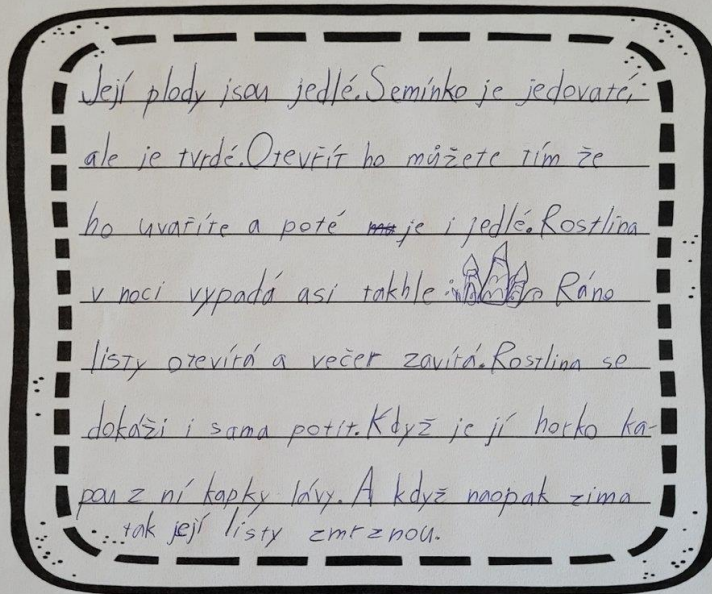 Její plody jsou jedlé. Semínko je jedovaté,
ale je tvrdé. Otevřít ho můžete tím že
ho uvaříte a poté je i jedlé. Rostlina
v noci vypadá asi takhle: Ráno
listy otevírá a večer zavírá. Rostlina se
dokáži i sama potit. Když je jí horko ka-
pou z ní kapky lávy. A když naopak zima
tak její listy zmrznou.